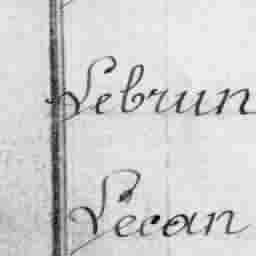 Lebrun
Lecan